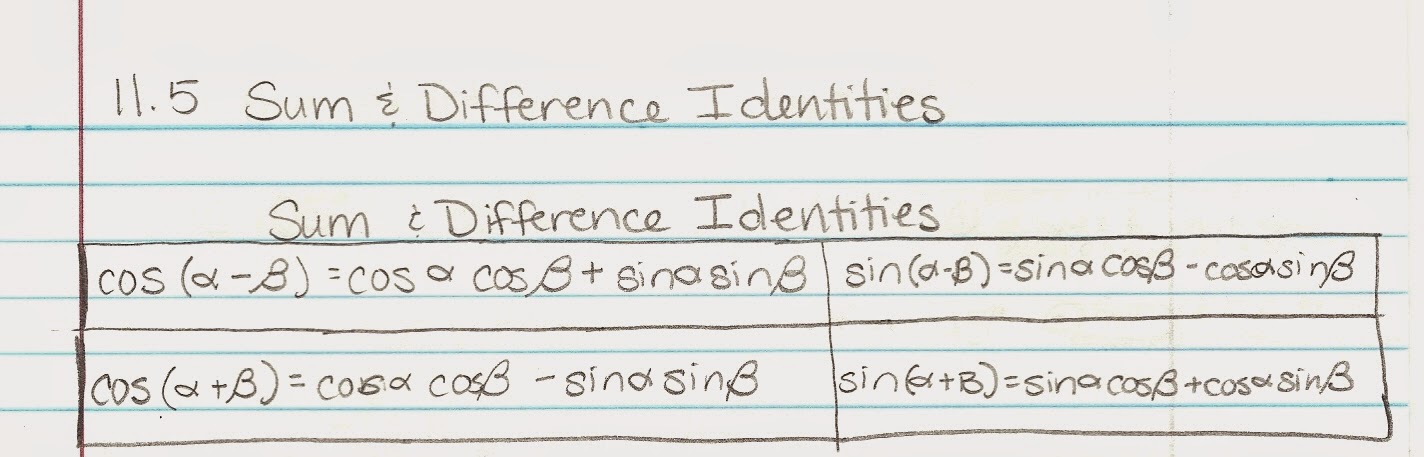 11.5 Sum & Difference Identities
Sum & Difference Identities
cos (α - β) = cos α cos β + sin α sin β sin(α-β) = sin α cos β - cos α sin β
cos (α + β) = cos α cos β - sin α sin β sin(α+β) = sin α cos β + cos α sin β